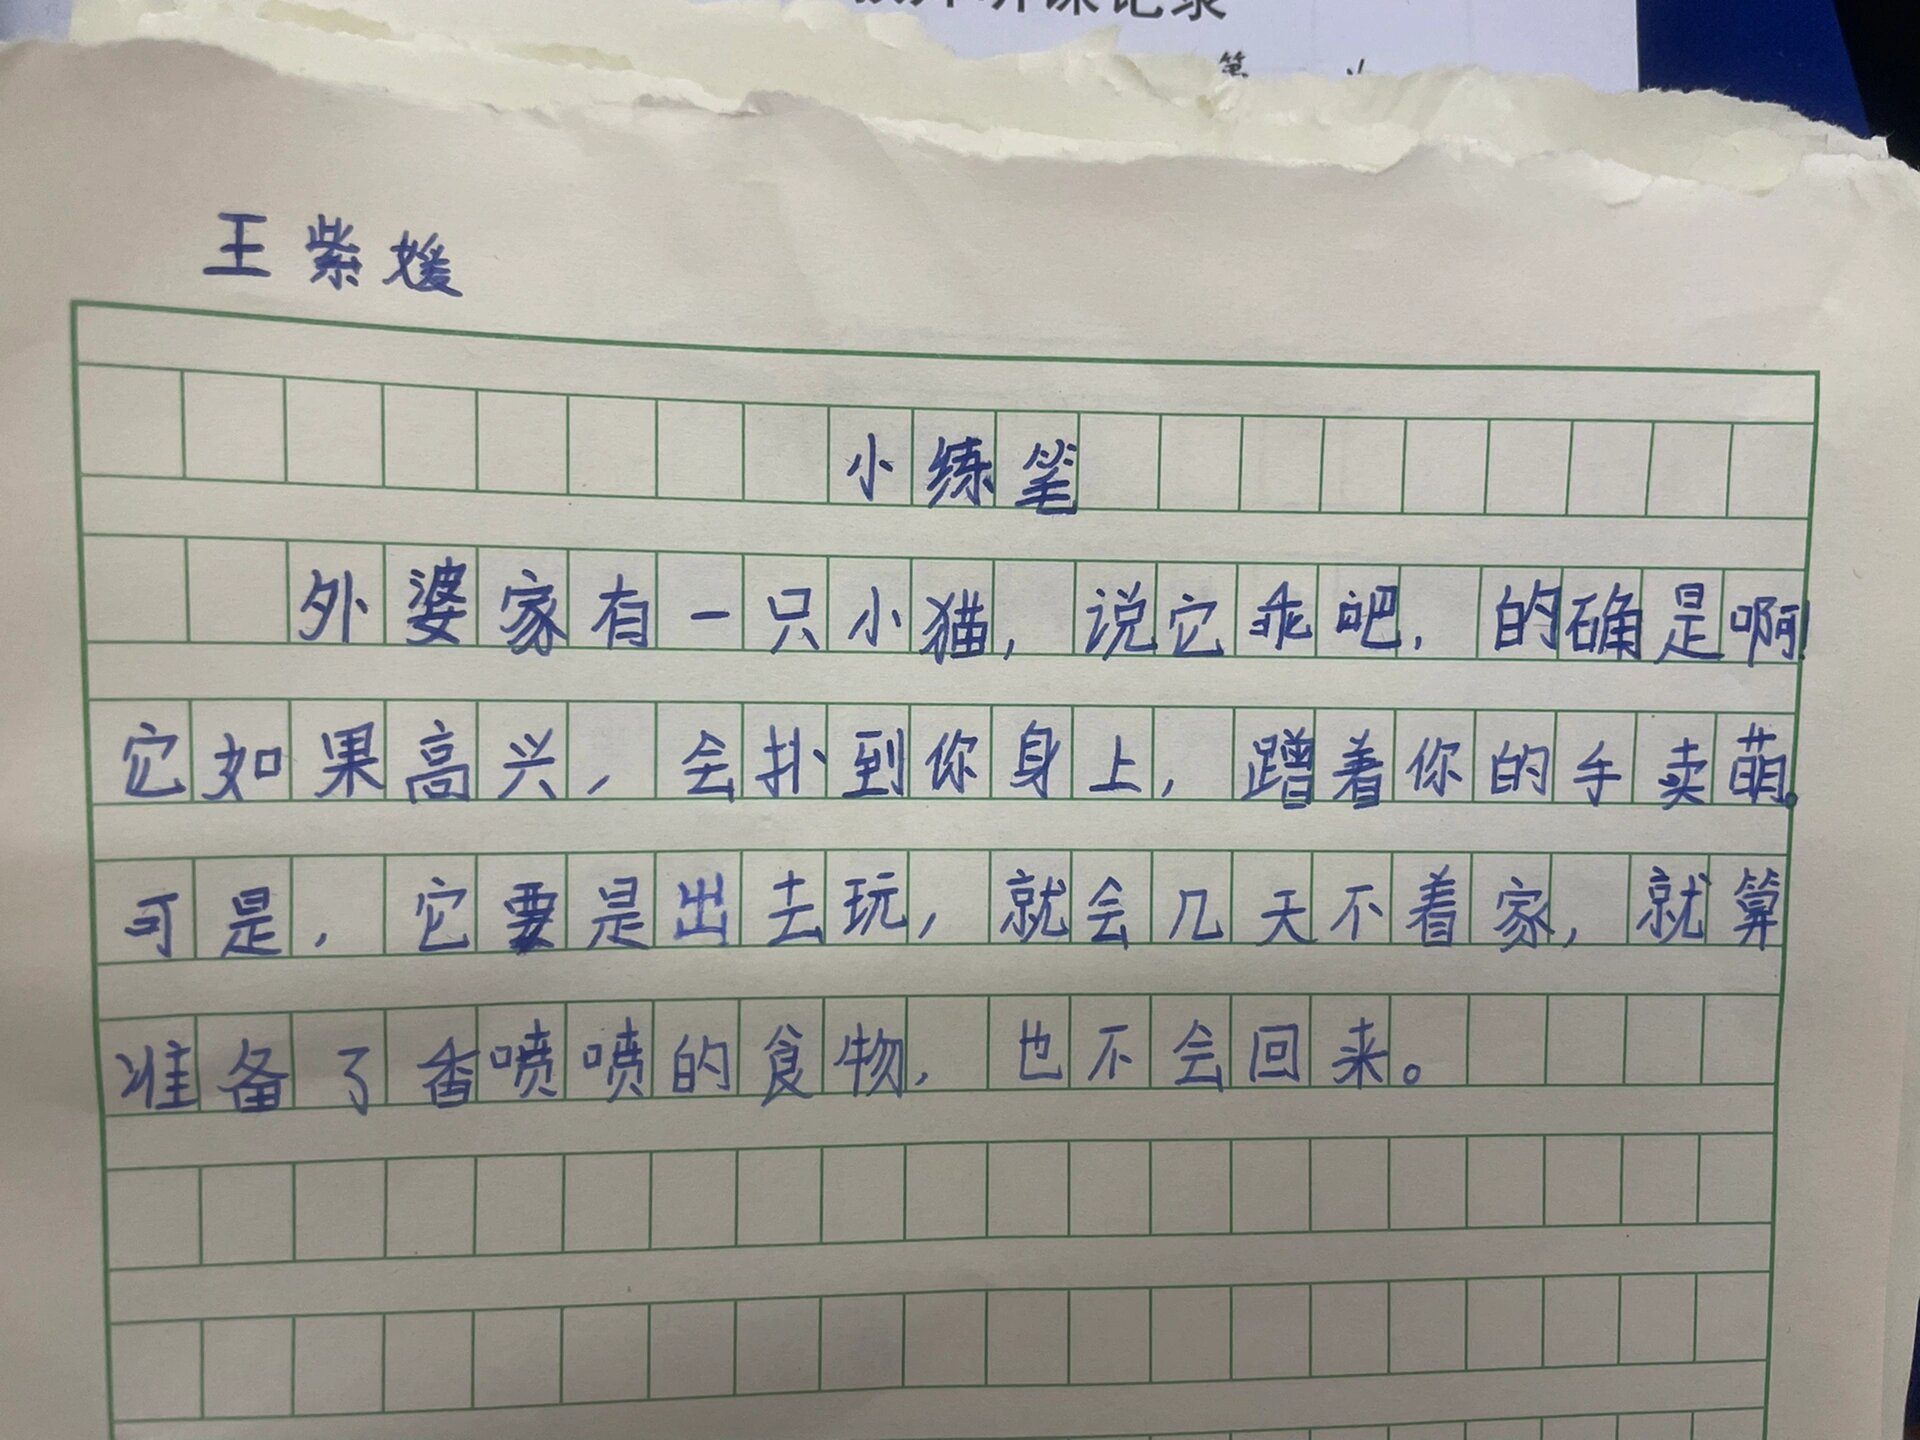 听课记录
第
王紫媛
小练笔
外婆家有一只小猫，说它乖吧，的确是啊！
它如果高兴，会扑到你身上，蹭着你的手卖萌。
可是，它要是出去玩，就会几天不着家，就算
准备了香喷喷的食物，也不会回来。